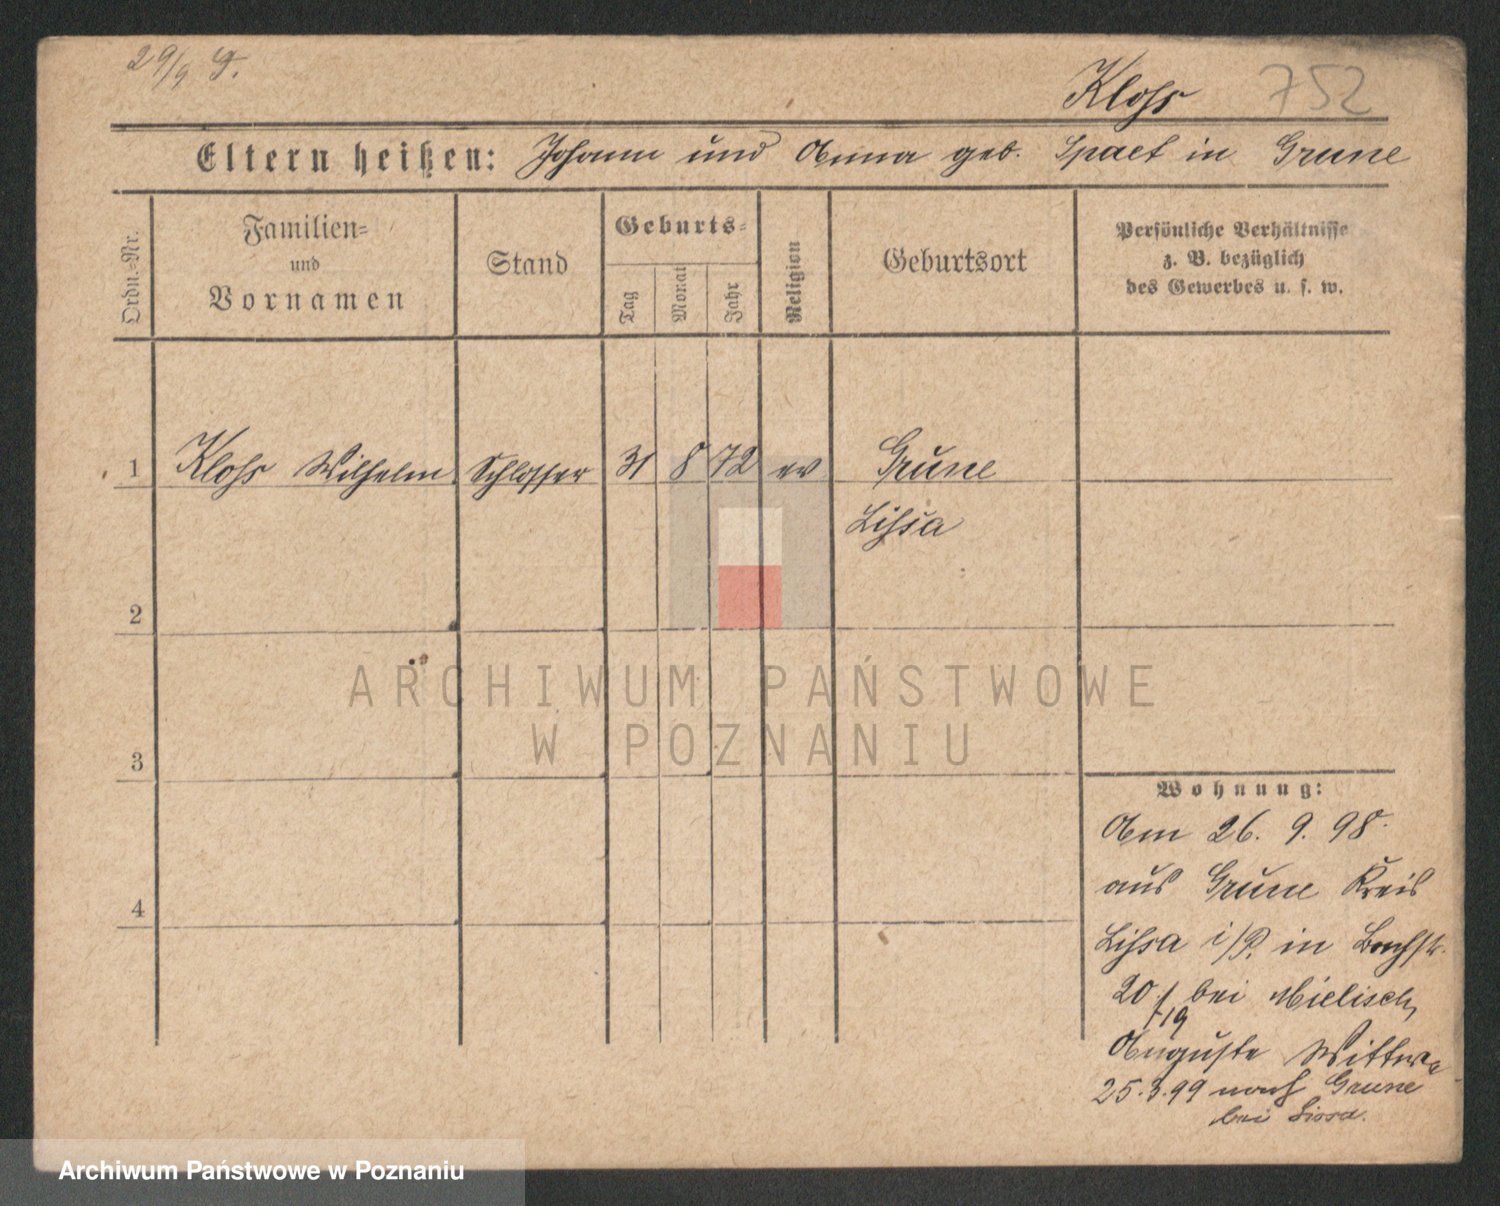 29/9 G.
Klohs 752
Eltern heißen: Johann und Anna geb. Spaet in Grune
Ordn.-Nr.
Familien- und Vornamen
Stand
Geburts-
Tag Monat Jahr
Religion
Geburtsort
Persönliche Verhältnisse
z. B. bezüglich
des Gewerbes u. s. w.
1 Klohs Wilhelm Schlosser 31 8 72 ev Grune
Lihsa
2
ARCHIWUM PAŃSTWOWE
W POZNANIU
3
Wohnung:
Am 26. 9. 98.
aus Grune Kreis
4
Lihsa i/P. in Bachstr.
20 bei Mielisch,
/19
Auguste Wittwe
25.3.99 nach Grune
bei Lissa.
Archiwum Państwowe w Poznaniu